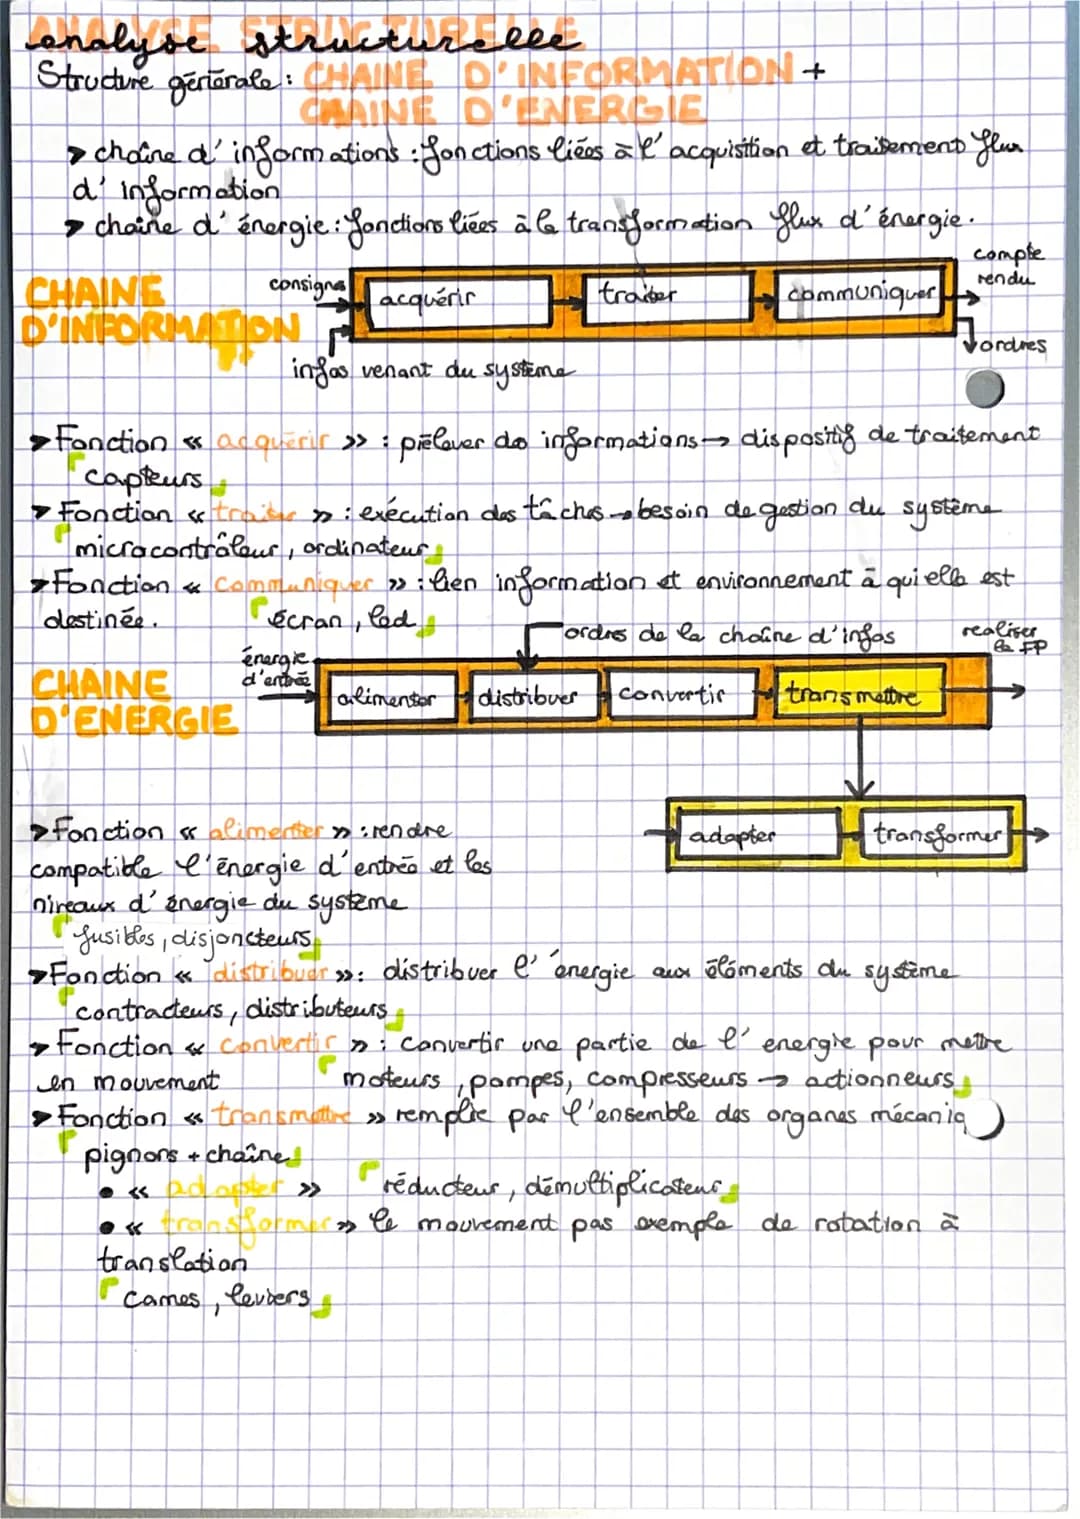 analyse structurelle
Structure générale : CHAINE D'INFORMATION +
CHAINE D'ENERGIE
> chaîne d'informations : fonctions liées à l'acquisition et traitement flux
d'information
> chaîne d'énergie : fonctions liées à la transformation flux d'énergie.
CHAINE
D'INFORMATION
consignes
acquérir
traiter
communiquer
compte
rendu
ordres
infos venant du système
> Fonction « acquérir » : prélever des informations → dispositif de traitement
capteurs
> Fonction « traiter » : exécution des tâches → besoin de gestion du système
microcontrôleur, ordinateur
> Fonction « communiquer » : lien information et environnement à qui elle est
destinée.
écran, led
ordres de la chaîne d'infos
CHAINE
D'ENERGIE
énergie
d'entrée
alimenter
distribuer
convertir
transmettre
realiser
la FP
adapter
transformer
> Fonction « alimenter » : rendre
compatible l'énergie d'entrée et les
niveaux d'énergie du système
fusibles, disjoncteurs
> Fonction « distribuer » : distribuer l'énergie aux éléments du système
contracteurs, distributeurs
> Fonction « convertir » : convertir une partie de l'energie pour mettre
en mouvement
moteurs, pompes, compresseurs → actionneurs
> Fonction « transmettre » remplie par l'ensemble des organes mécaniq
pignons + chaîne
• « adapter » réducteur, démultiplicateur
• « transformer » le mouvement pas exemple de rotation à
translation
cames, leviers